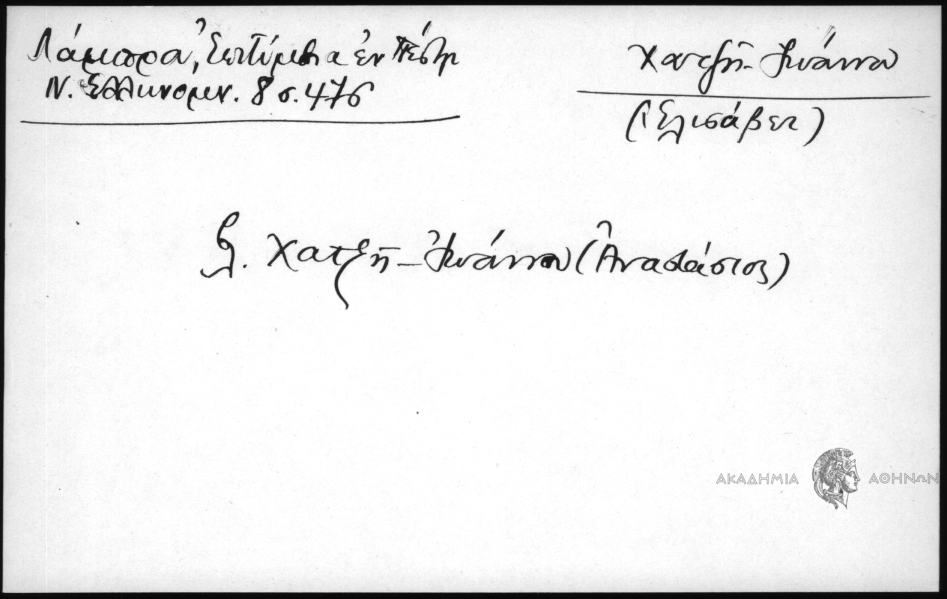 Λάμπρα, Ἐπιτύμβια ἐν Πέστῃ
Ν. Ἑλληνομν. 8 σ. 476
Χατζῆ-Ἰωάννου
(Ἐλισάβετ)
βλ. Χατζῆ-Ἰωάννου (Ἀναστάσιος)
ΑΚΑΔΗΜΙΑ ΑΘΗΝΩΝ